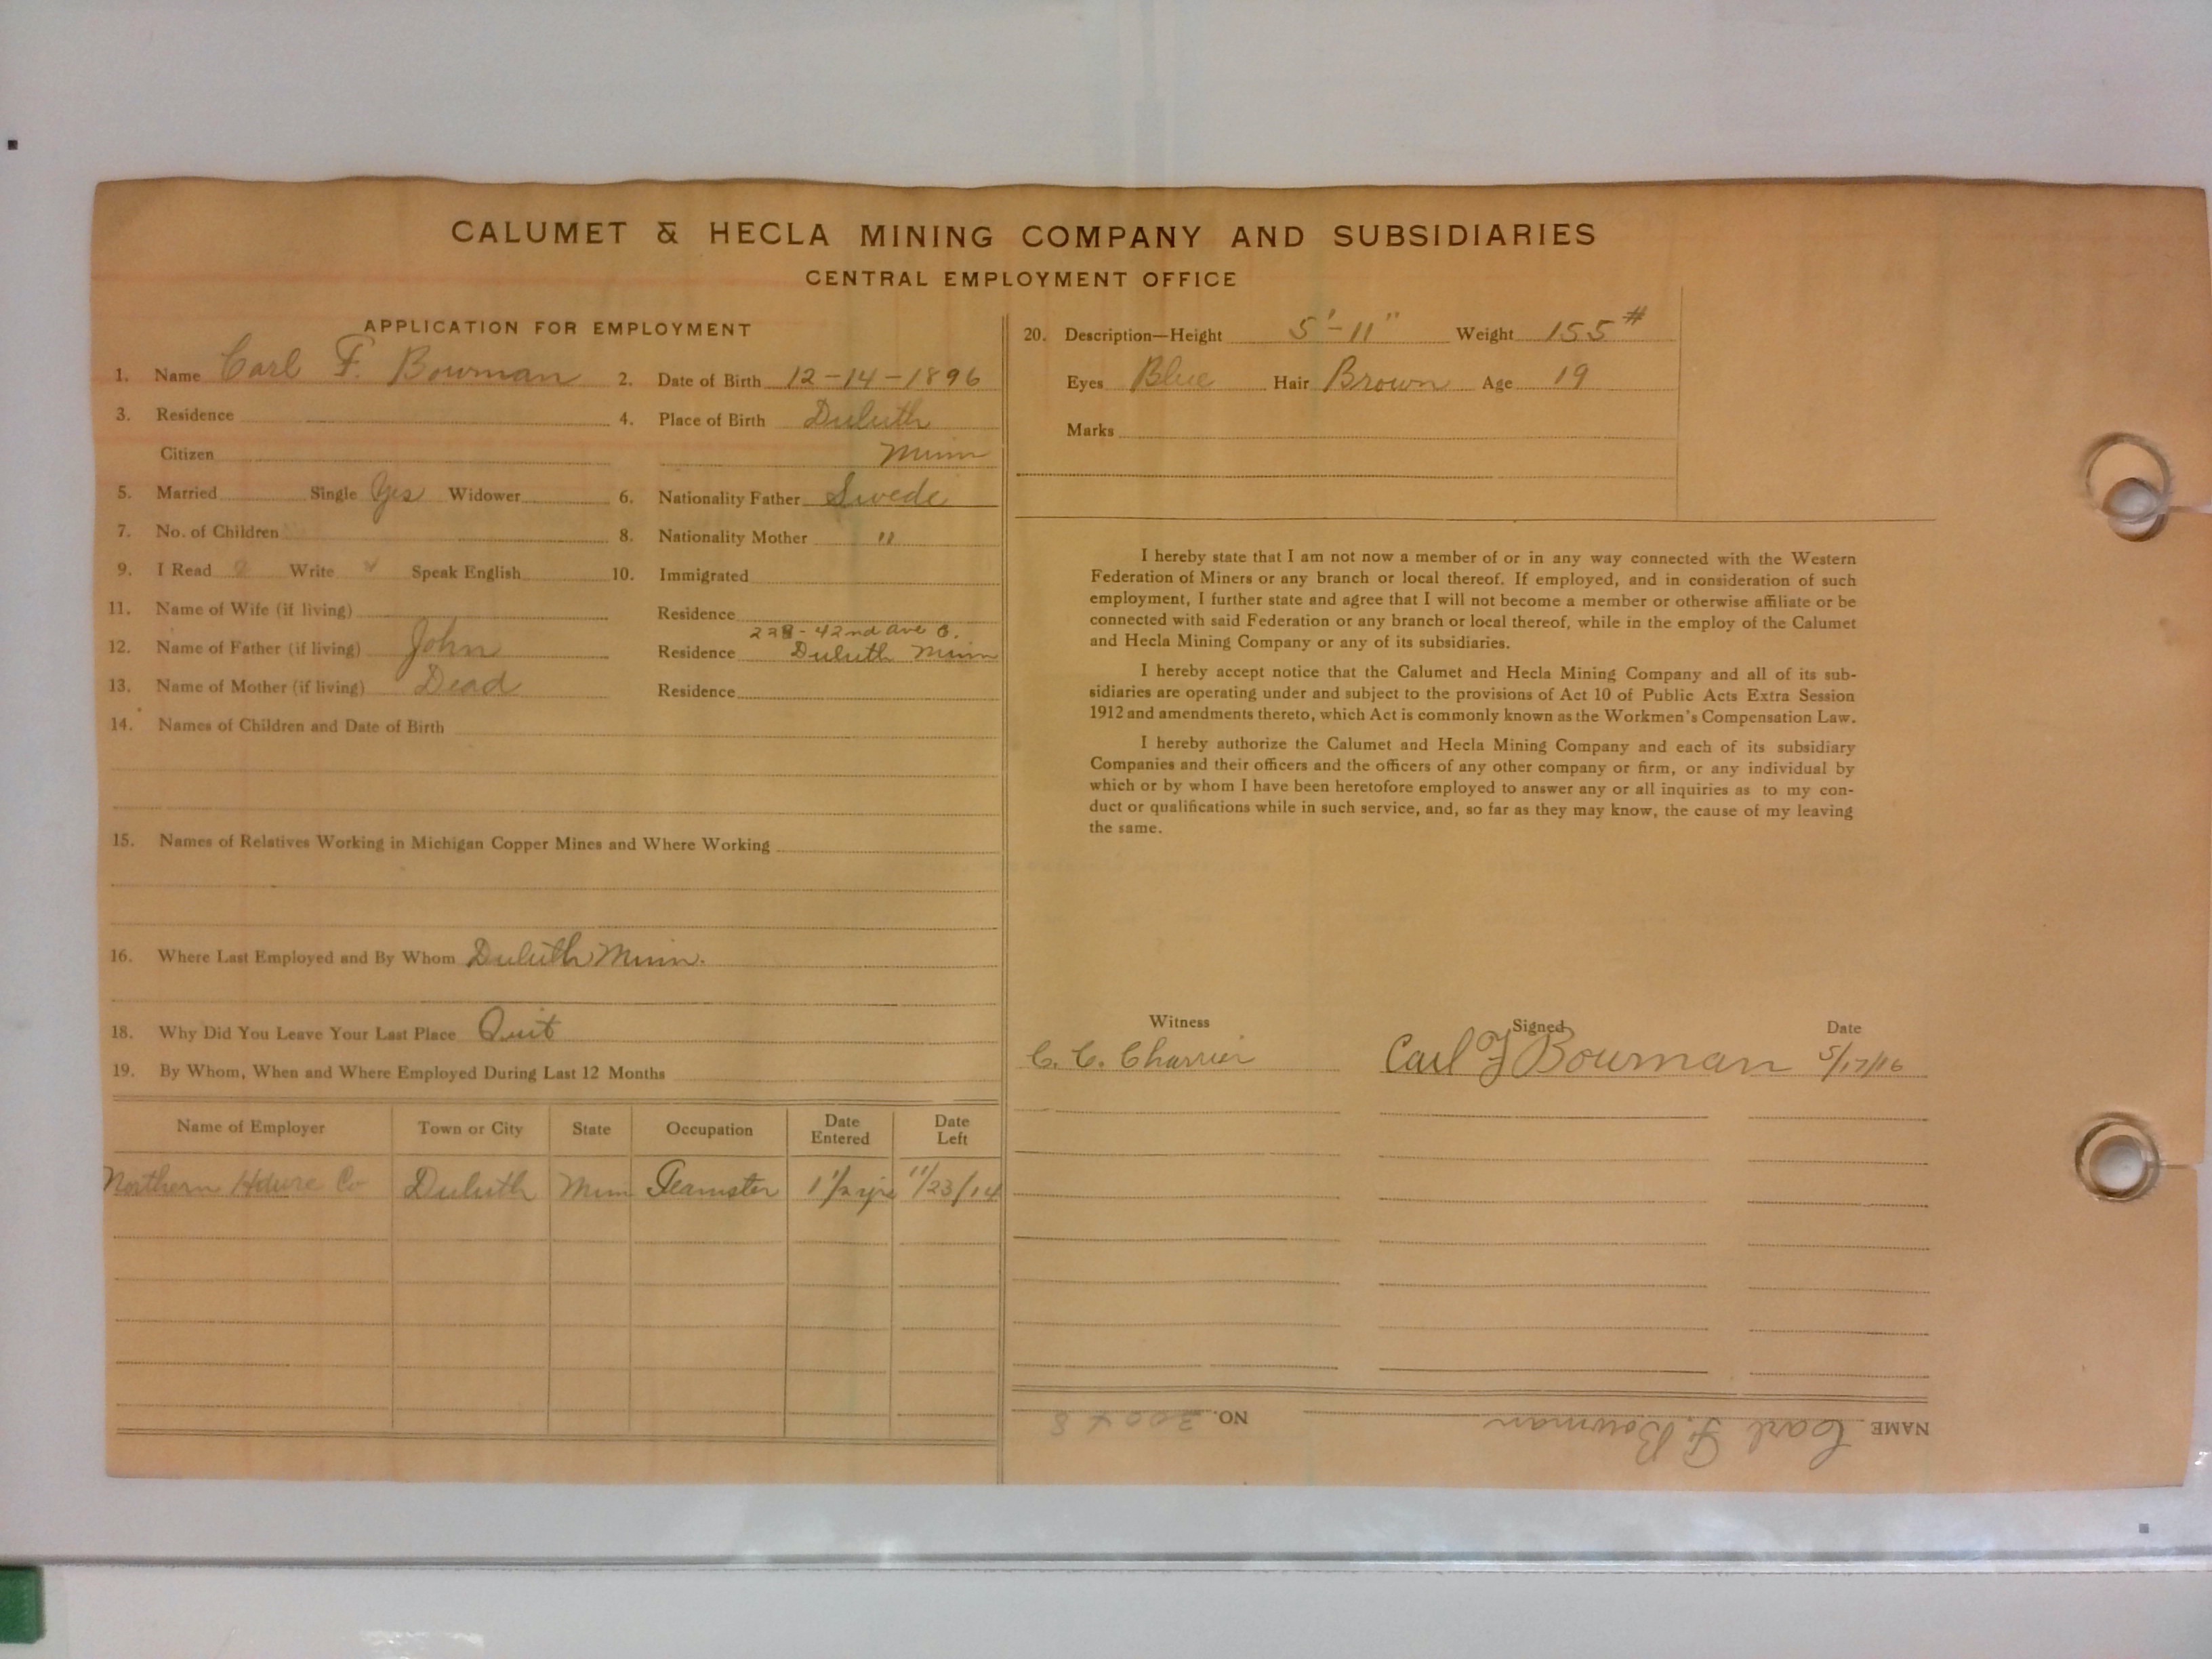 CALUMET & HECLA MINING COMPANY AND SUBSIDIARIES
CENTRAL EMPLOYMENT OFFICE
APPLICATION FOR EMPLOYMENT
1. Name Carl F. Bowman 2. Date of Birth 12-14-1896
3. Residence 4. Place of Birth Duluth
Citizen Minn
5. Married Single Yes Widower 6. Nationality Father Swede
7. No. of Children 8. Nationality Mother "
9. I Read Write Speak English 10. Immigrated
11. Name of Wife (if living) Residence
228-42nd ave
12. Name of Father (if living) John Residence Duluth Minn
13. Name of Mother (if living) Dead Residence
14. Names of Children and Date of Birth
15. Names of Relatives Working in Michigan Copper Mines and Where Working
16. Where Last Employed and By Whom Duluth Minn.
18. Why Did You Leave Your Last Place Quit
19. By Whom, When and Where Employed During Last 12 Months
Name of Employer Town or City State Occupation Date Entered Date Left
Northern Hdwre Co Duluth Minn Teamster 1 1/2 yrs 11/23/14
20. Description—Height 5'-11" Weight 155#
Eyes Blue Hair Brown Age 19
Marks
I hereby state that I am not now a member of or in any way connected with the Western
Federation of Miners or any branch or local thereof. If employed, and in consideration of such
employment, I further state and agree that I will not become a member or otherwise affiliate or be
connected with said Federation or any branch or local thereof, while in the employ of the Calumet
and Hecla Mining Company or any of its subsidiaries.
I hereby accept notice that the Calumet and Hecla Mining Company and all of its sub-
sidiaries are operating under and subject to the provisions of Act 10 of Public Acts Extra Session
1912 and amendments thereto, which Act is commonly known as the Workmen's Compensation Law.
I hereby authorize the Calumet and Hecla Mining Company and each of its subsidiary
Companies and their officers and the officers of any other company or firm, or any individual by
which or by whom I have been heretofore employed to answer any or all inquiries as to my con-
duct or qualifications while in such service, and, so far as they may know, the cause of my leaving
the same.
Witness Signed Date
C. C. Charrier Carl F Bowman 5/17/16
NAME Carl F. Bowman NO. 30048